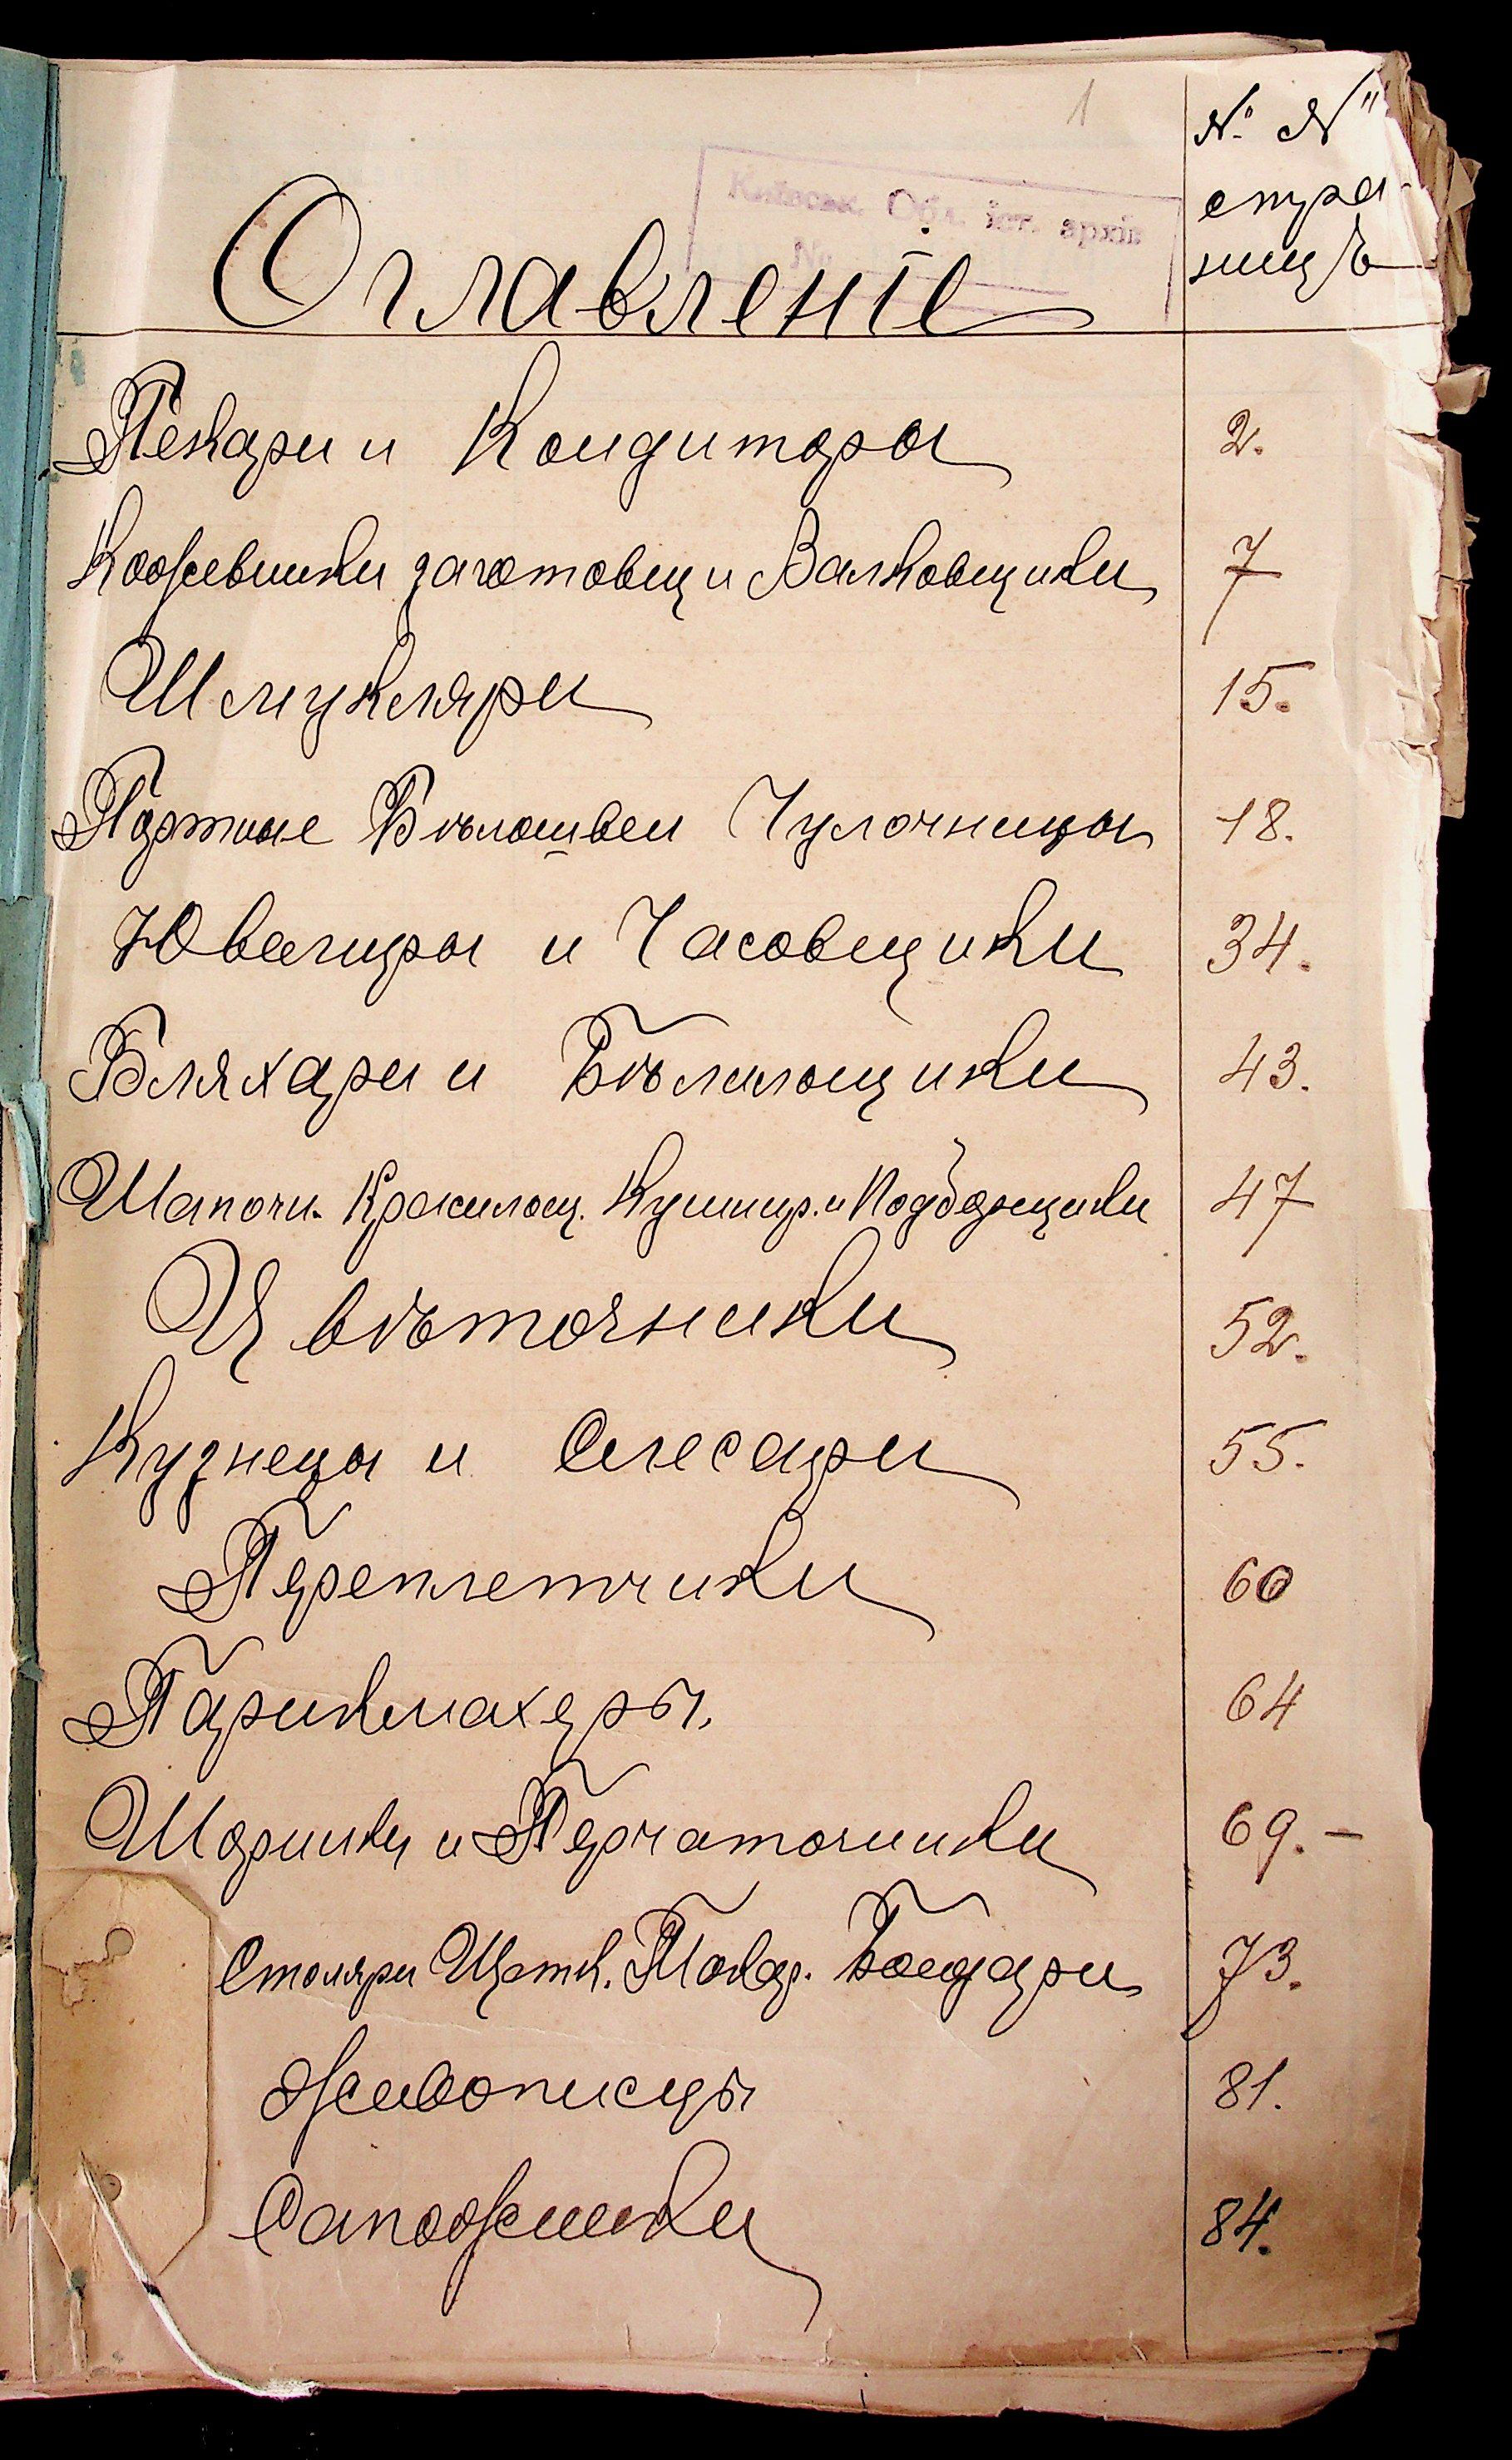 1
№ №
стра-
ницъ
Київськ. Обл. іст. архів
№
Оглавленіе
Пекари и Кондиторы 2.
Кожевники заготовщ и Валковщики 7
Шмукляри 15.
Портные Бѣлошвеи Чулочницы 18.
Ювелиры и Часовщики 34.
Бляхари и Бѣлильщики 43.
Шапочн. Красильщ. Кушнир. и Подборщики 47
Цвѣточники 52.
Кузнецы и Слесари 55.
Переплетчики 60
Парикмахеры. 64
Шорники и Перчаточники 69.-
Столяри Щетк. Токар. Бондари 73.
Живописцы 81.
Сапожники 84.